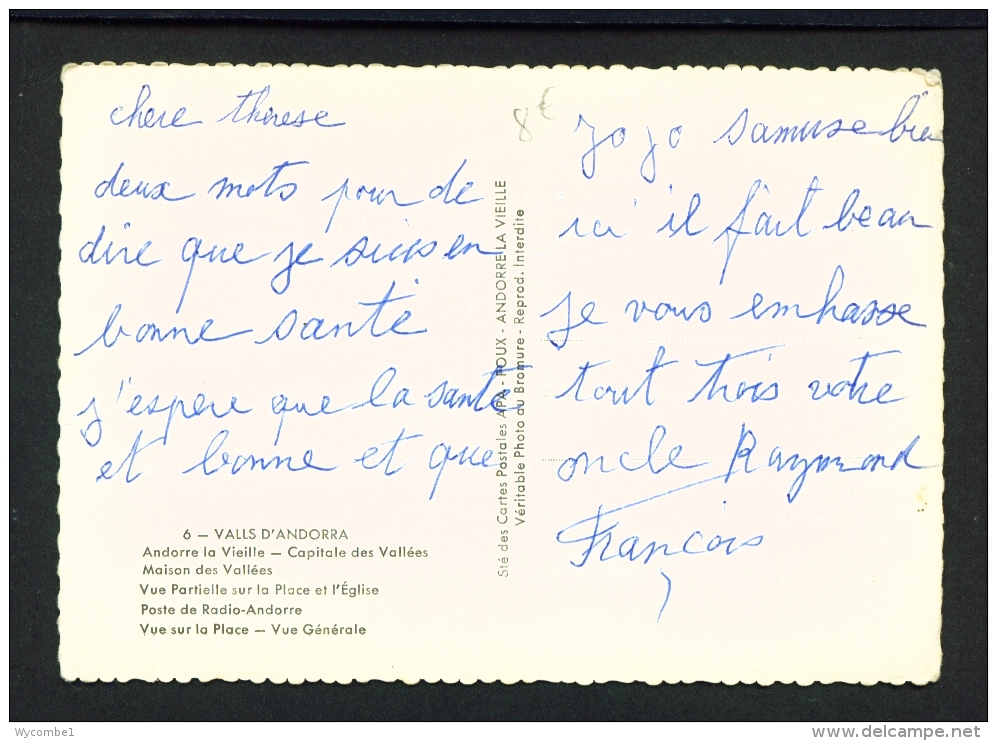 chere therese
deux mots pour de
dire que je suis en
bonne santé
j'espere que la santé
et bonne et que
8€
jojo samuse bien
ici il fait beau
je vous embrasse
tout trois votre
oncle Raymond
François
Sté des Cartes Postales APA - POUX - ANDORRE LA VIEILLE
Véritable Photo au Bromure - Reprod. Interdite
6 — VALLS D'ANDORRA
Andorre la Vieille — Capitale des Vallées
Maison des Vallées
Vue Partielle sur la Place et l'Église
Poste de Radio-Andorre
Vue sur la Place — Vue Générale
Wycombe1
delcampe.net